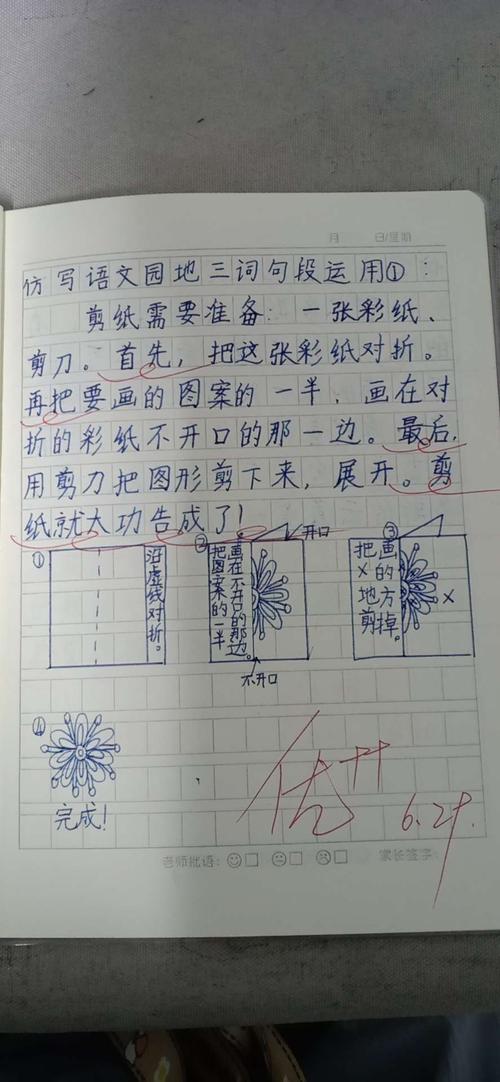 月 日/星期
仿写语文园地三词句段运用①：
剪纸需要准备：一张彩纸、
剪刀。首先，把这张彩纸对折。
再把要画的图案的一半，画在对
折的彩纸不开口的那一边。最后，
用剪刀把图形剪下来，展开。剪
纸就大功告成了！
①
沿虚线对折。
②
开口
画在不开口的那边。
把图案的一半
不开口
③
把画
x的
地方
剪掉。
x
④
完成！
优++
6.29.
老师批语：
家长签字：